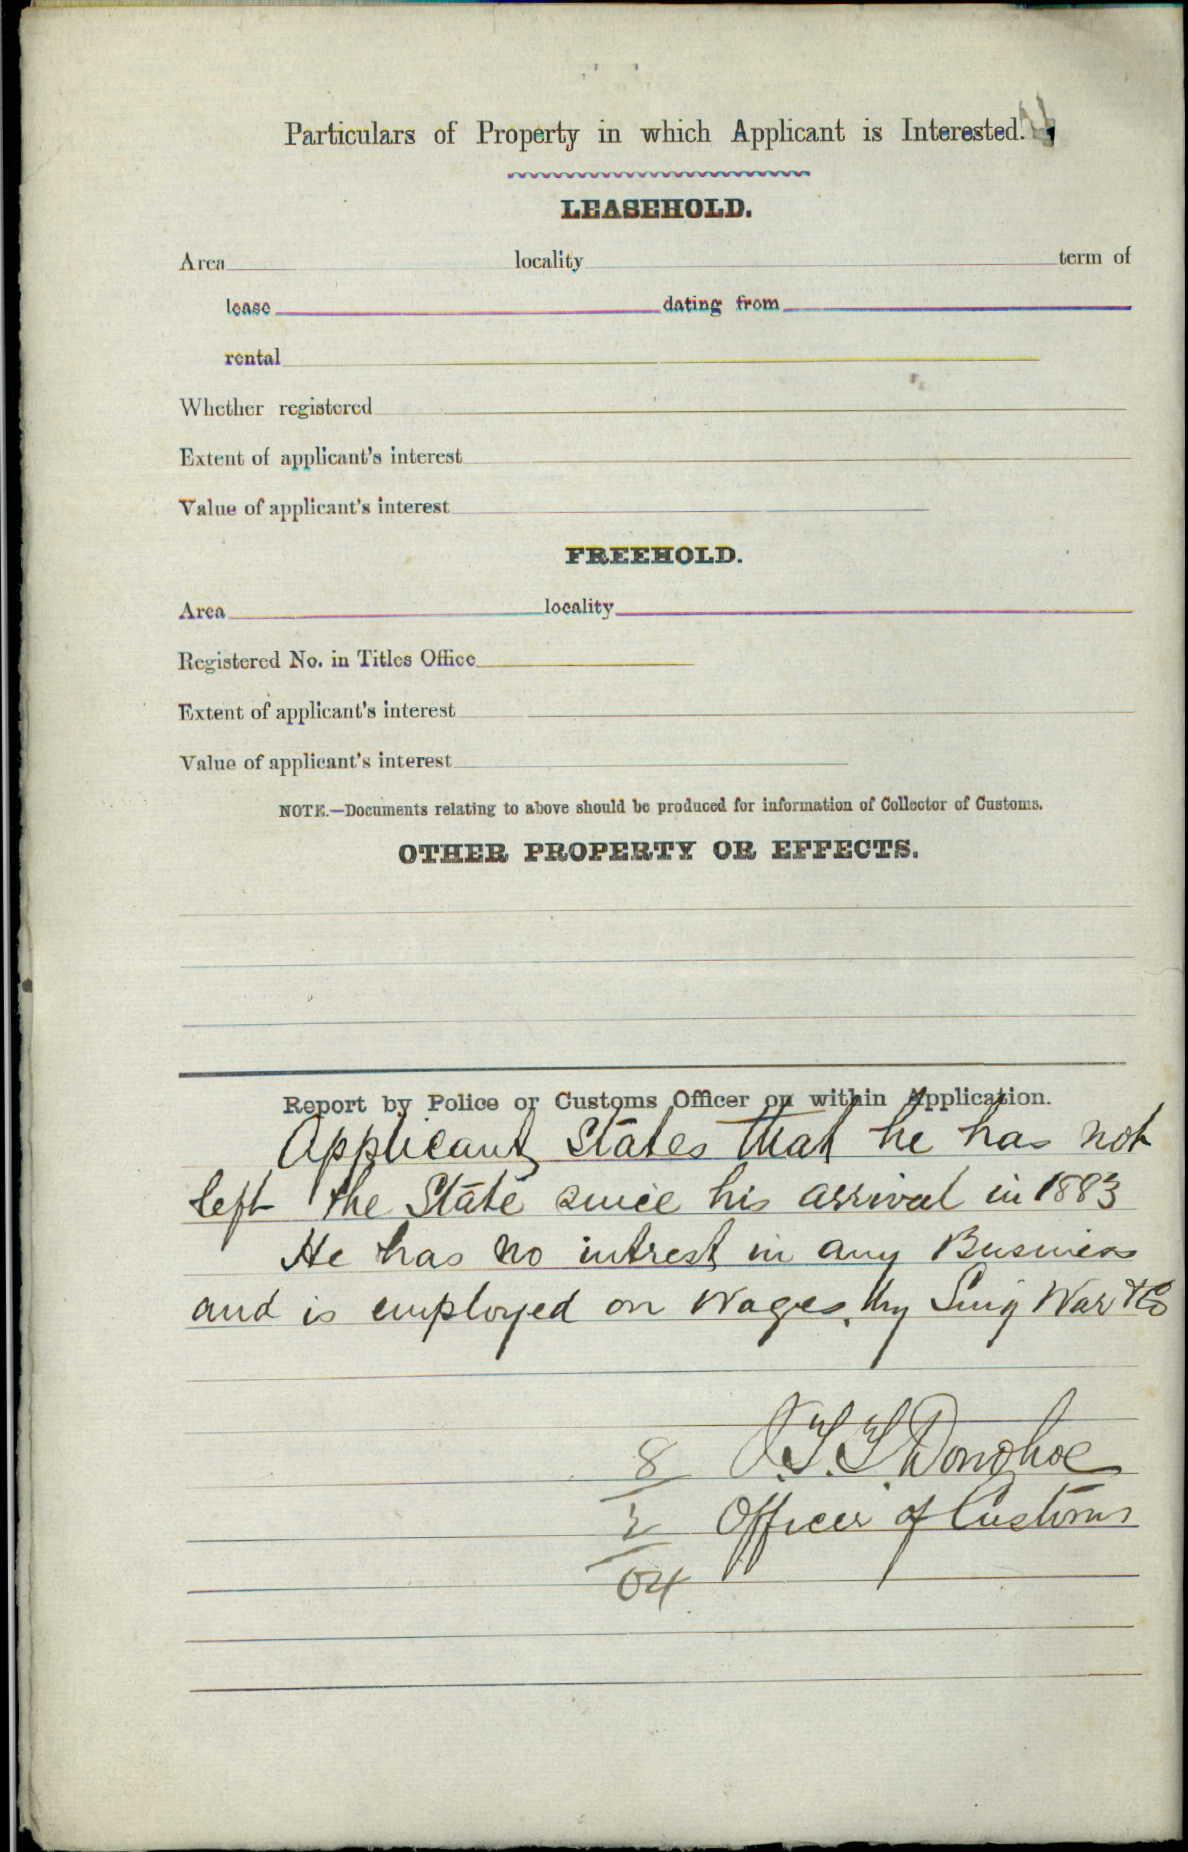 Particulars of Property in which Applicant is Interested.
LEASEHOLD.
Area locality term of
lease dating from
rental
Whether registered
Extent of applicant's interest
Value of applicant's interest
FREEHOLD.
Area locality
Registered No. in Titles Office
Extent of applicant's interest
Value of applicant's interest
NOTE.—Documents relating to above should be produced for information of Collector of Customs.
OTHER PROPERTY OR EFFECTS.
Report by Police or Customs Officer on within Application.
Applicant States that he has not
left the State since his arrival in 1883
He has no intrest in any Business
and is employed on Wages by Sing War & Co
8 Donohoe
2 Officer of Customs
04